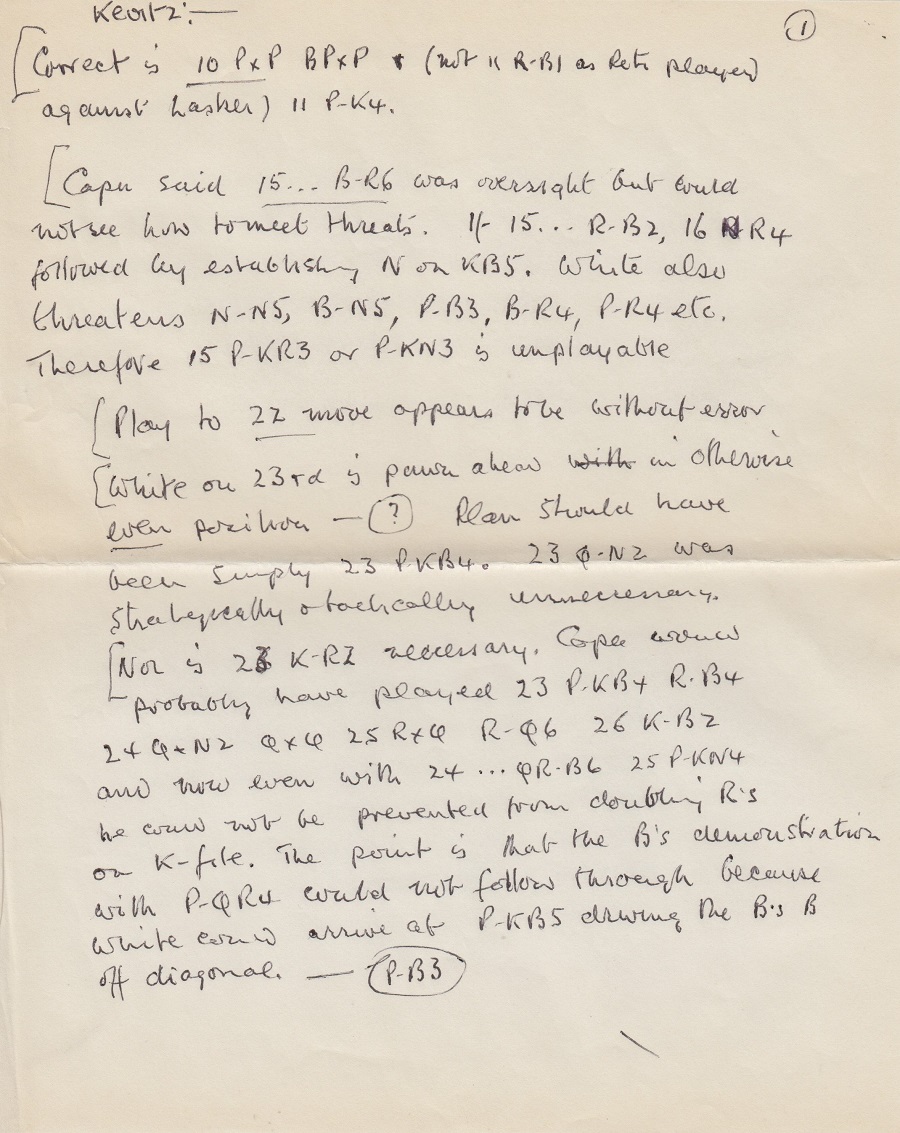 Keortz:—
①
[Correct is 10 PxP BPxP (not 11 R-B1 as Reti played
against Lasker) 11 P-K4.
[Capa said 15... B-R6 was oversight but could
not see how to meet threats. If 15... R-B2, 16 N-R4
followed by establishing N on KB5. White also
threatens N-N5, B-N5, P-B3, B-R4, P-R4 etc.
Therefore 15 P-KR3 or P-KN3 is unplayable
[Play to 22 move appears to be without error
[White on 23rd is pawn ahead with in otherwise
even position — (?) Plan should have
been simply 23 P-KB4. 23 Q-N2 was
strategically & tactically unnecessary.
[Nor is 23 K-R1 necessary. Capa would
probably have played 23 P-KB4 R-B4
24 Q-N2 QxQ 25 RxQ R-Q6 26 K-B2
and now even with 24 ... QR-B6 25 P-KN4
he could not be prevented from doubling R's
on K-file. The point is that the B's demonstration
with P-QR4 could not follow through because
White could arrive at P-KB5 driving the B's B
off diagonal. — (P-B3)